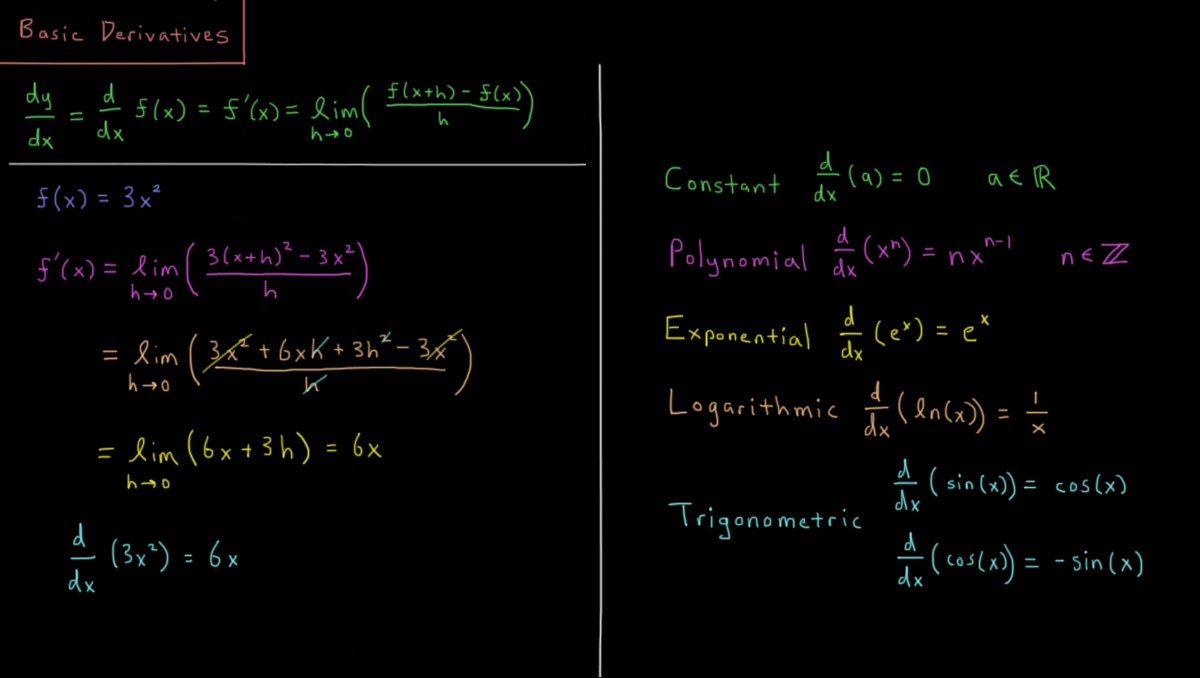 Basic Derivatives
dy/dx = d/dx f(x) = f'(x) = lim h→0 ( (f(x+h) - f(x)) / h )
f(x) = 3x²
f'(x) = lim h→0 ( (3(x+h)² - 3x²) / h )
= lim h→0 ( (3x² + 6xh + 3h² - 3x²) / h )
= lim h→0 (6x + 3h) = 6x
d/dx (3x²) = 6x
Constant d/dx (a) = 0 a ∈ ℝ
Polynomial d/dx (xⁿ) = nxⁿ⁻¹ n ∈ ℤ
Exponential d/dx (eˣ) = eˣ
Logarithmic d/dx (ln(x)) = 1/x
Trigonometric d/dx (sin(x)) = cos(x)
d/dx (cos(x)) = -sin(x)